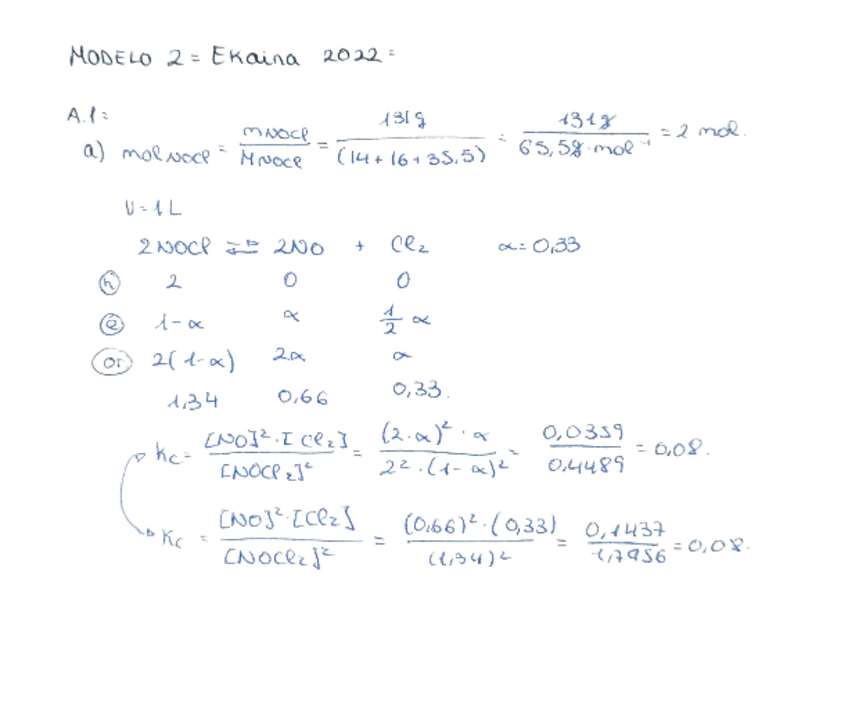 MODELO 2 = Ekaina 2022 =
A.1 =
a) mol NOCl = mNOCl / MNOCl = 131g / (14+16+35,5) = 131g / 65,5g·mol⁻¹ = 2 mol.
V = 1 L
2NOCl ⇌ 2NO + Cl₂ α = 0,33
(h) 2 0 0
(e) 1-α α 1/2 α
(or) 2(1-α) 2α α
1,34 0,66 0,33.
Kc = [NO]²·[Cl₂] / [NOCl₂]² = (2·α)²·α / 2²·(1-α)² = 0,0359 / 0,4489 = 0,08.
Kc = [NO]²·[Cl₂] / [NOCl₂]² = (0,66)²·(0,33) / (1,34)² = 0,1437 / 1,7956 = 0,08.